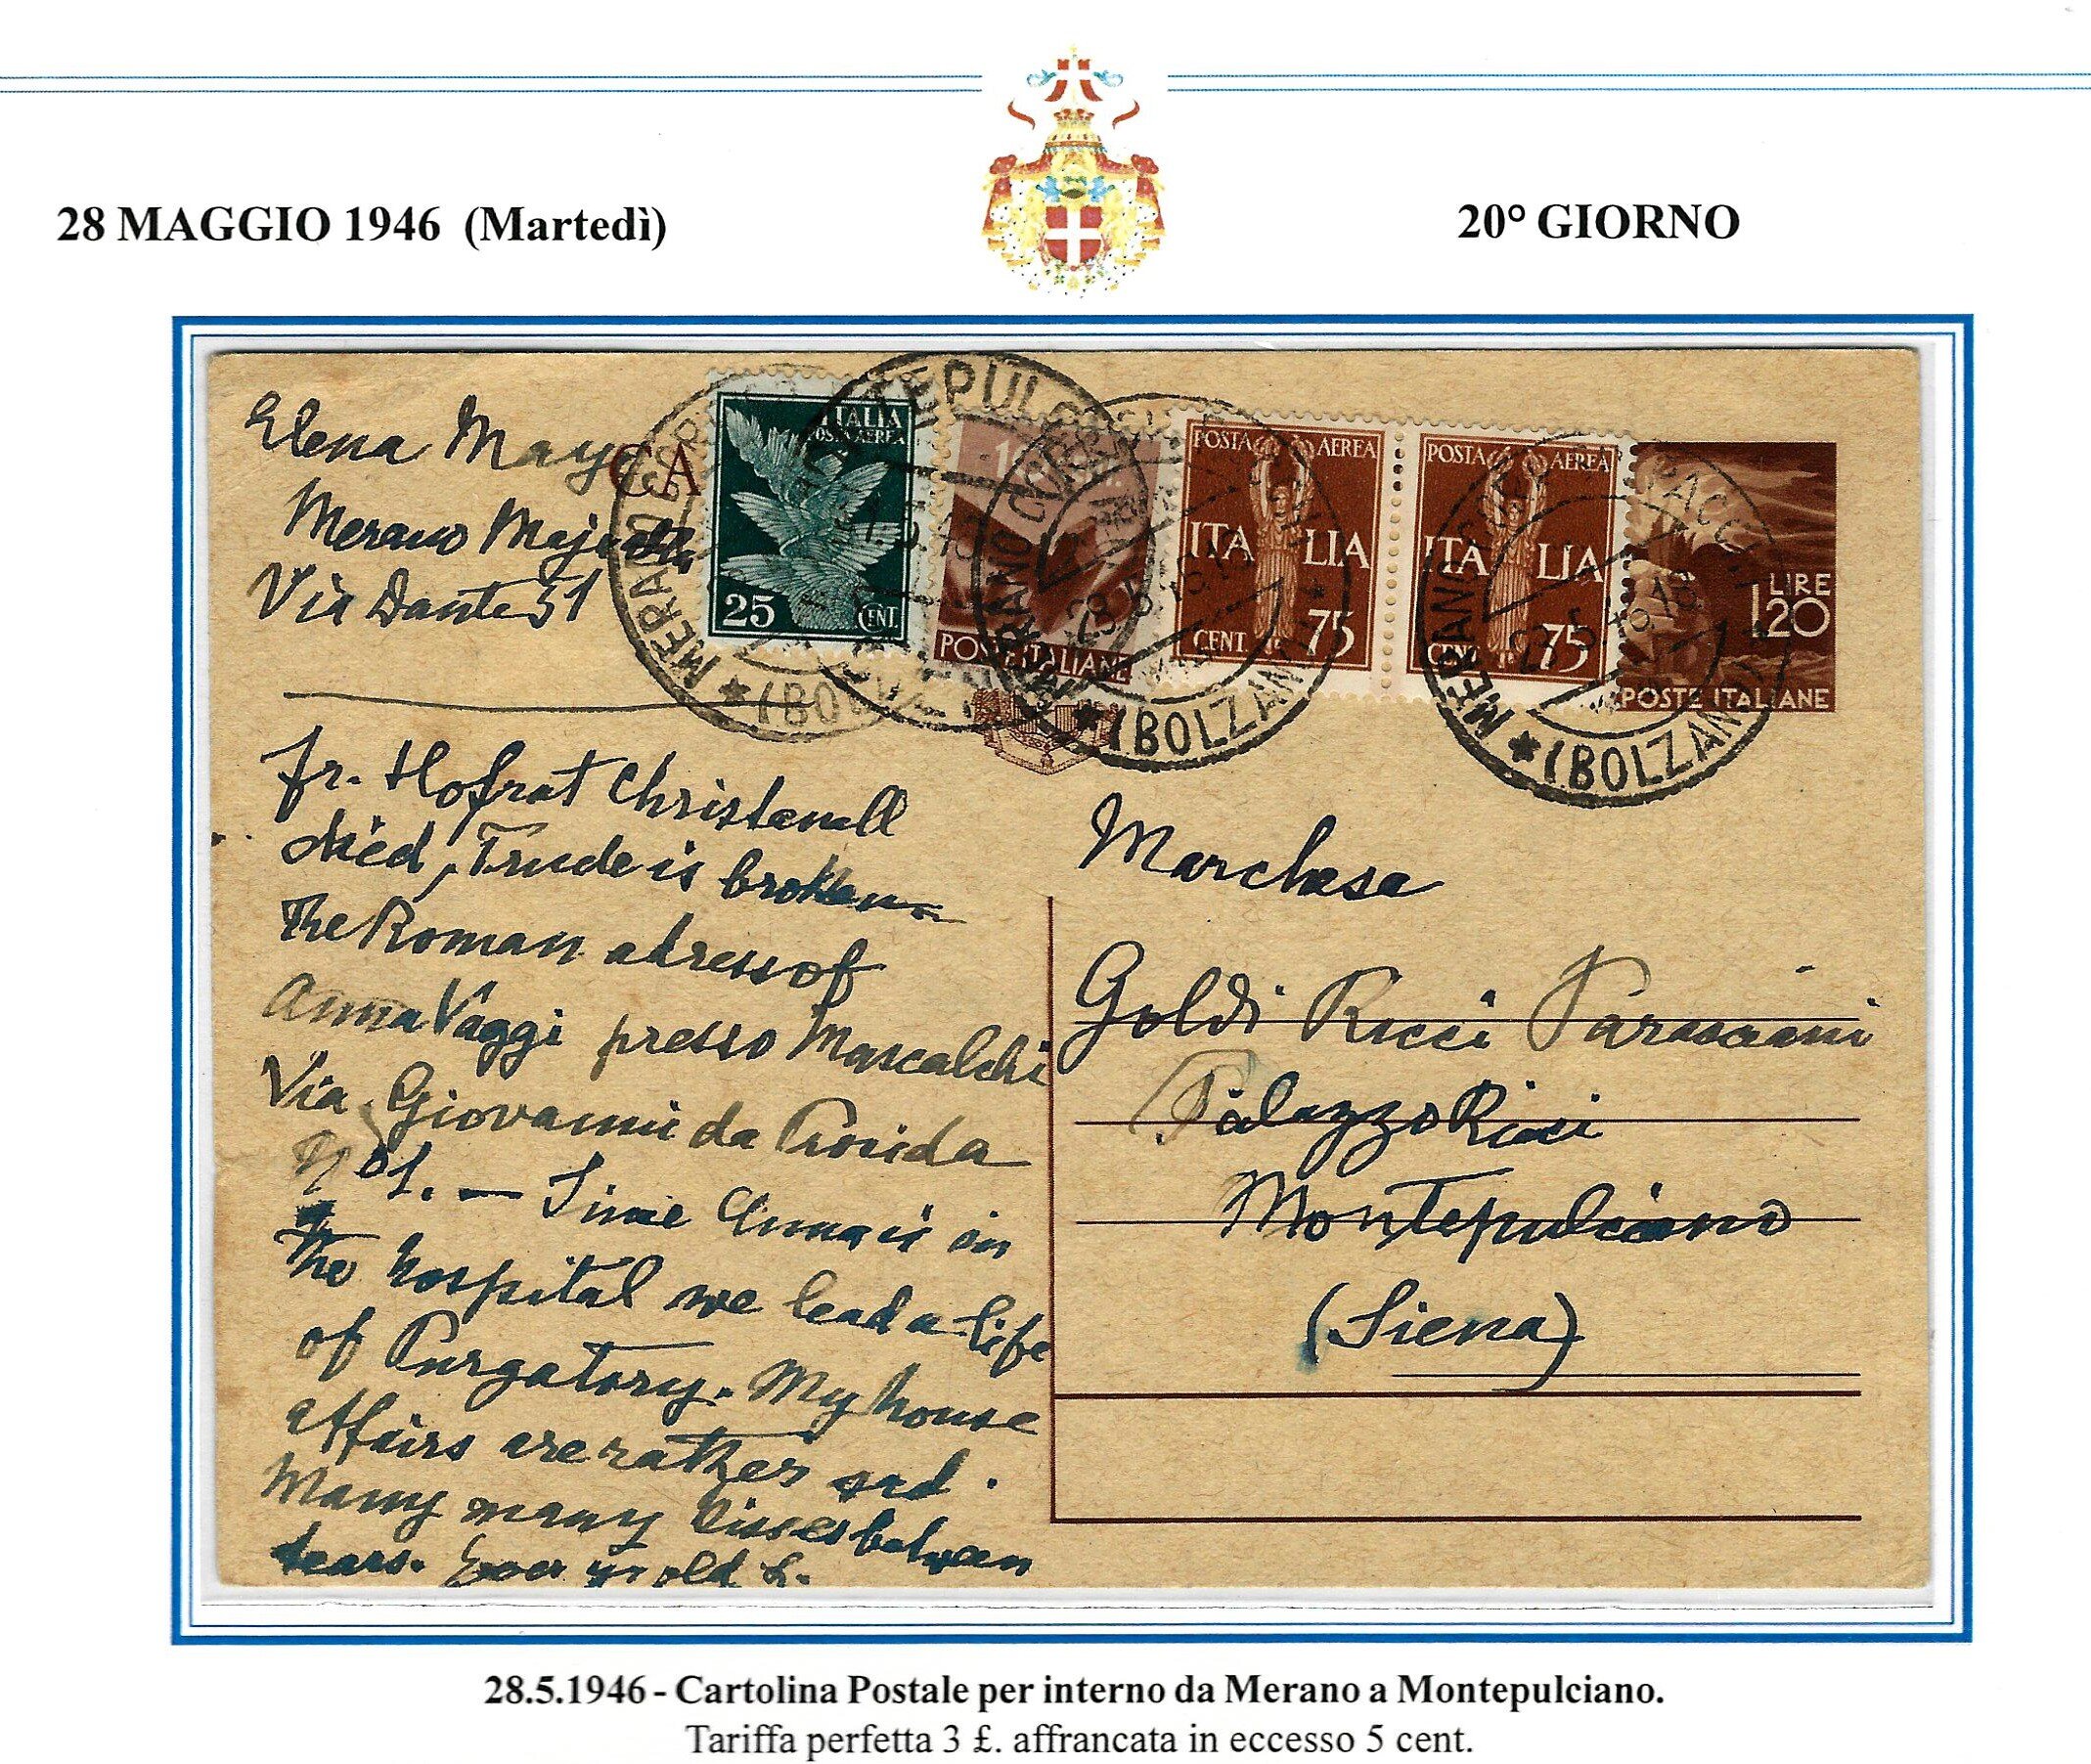 28 MAGGIO 1946 (Martedì)
20° GIORNO
Elena May
CA
Merano
Via Dante 51
ITALIA
POSTA AEREA
25 CENT.
POSTE ITALIANE
POSTA AEREA
ITALIA
CENT. 75
POSTA AEREA
ITALIA
CENT. 75
LIRE
1,20
POSTE ITALIANE
MERANO CORR. PACCHI
(BOLZANO)
28.5.46
MERANO
(BOLZANO)
MERANO
(BOLZANO)
fr. Hofrat
died, Trude is broken
The Roman adress of
Anna Vaggi presso Mascalchi
Via Giovanni da Procida
No 1. — Since Anna is in
the hospital we lead a life
of Purgatory. My house
affairs are rather sad.
Many many kisses between
tears. Ever yr old
Marchesa
Goldi Ricci Paracciani
Palazzo Ricci
Montepulciano
(Siena)
28.5.1946 - Cartolina Postale per interno da Merano a Montepulciano.
Tariffa perfetta 3 £. affrancata in eccesso 5 cent.